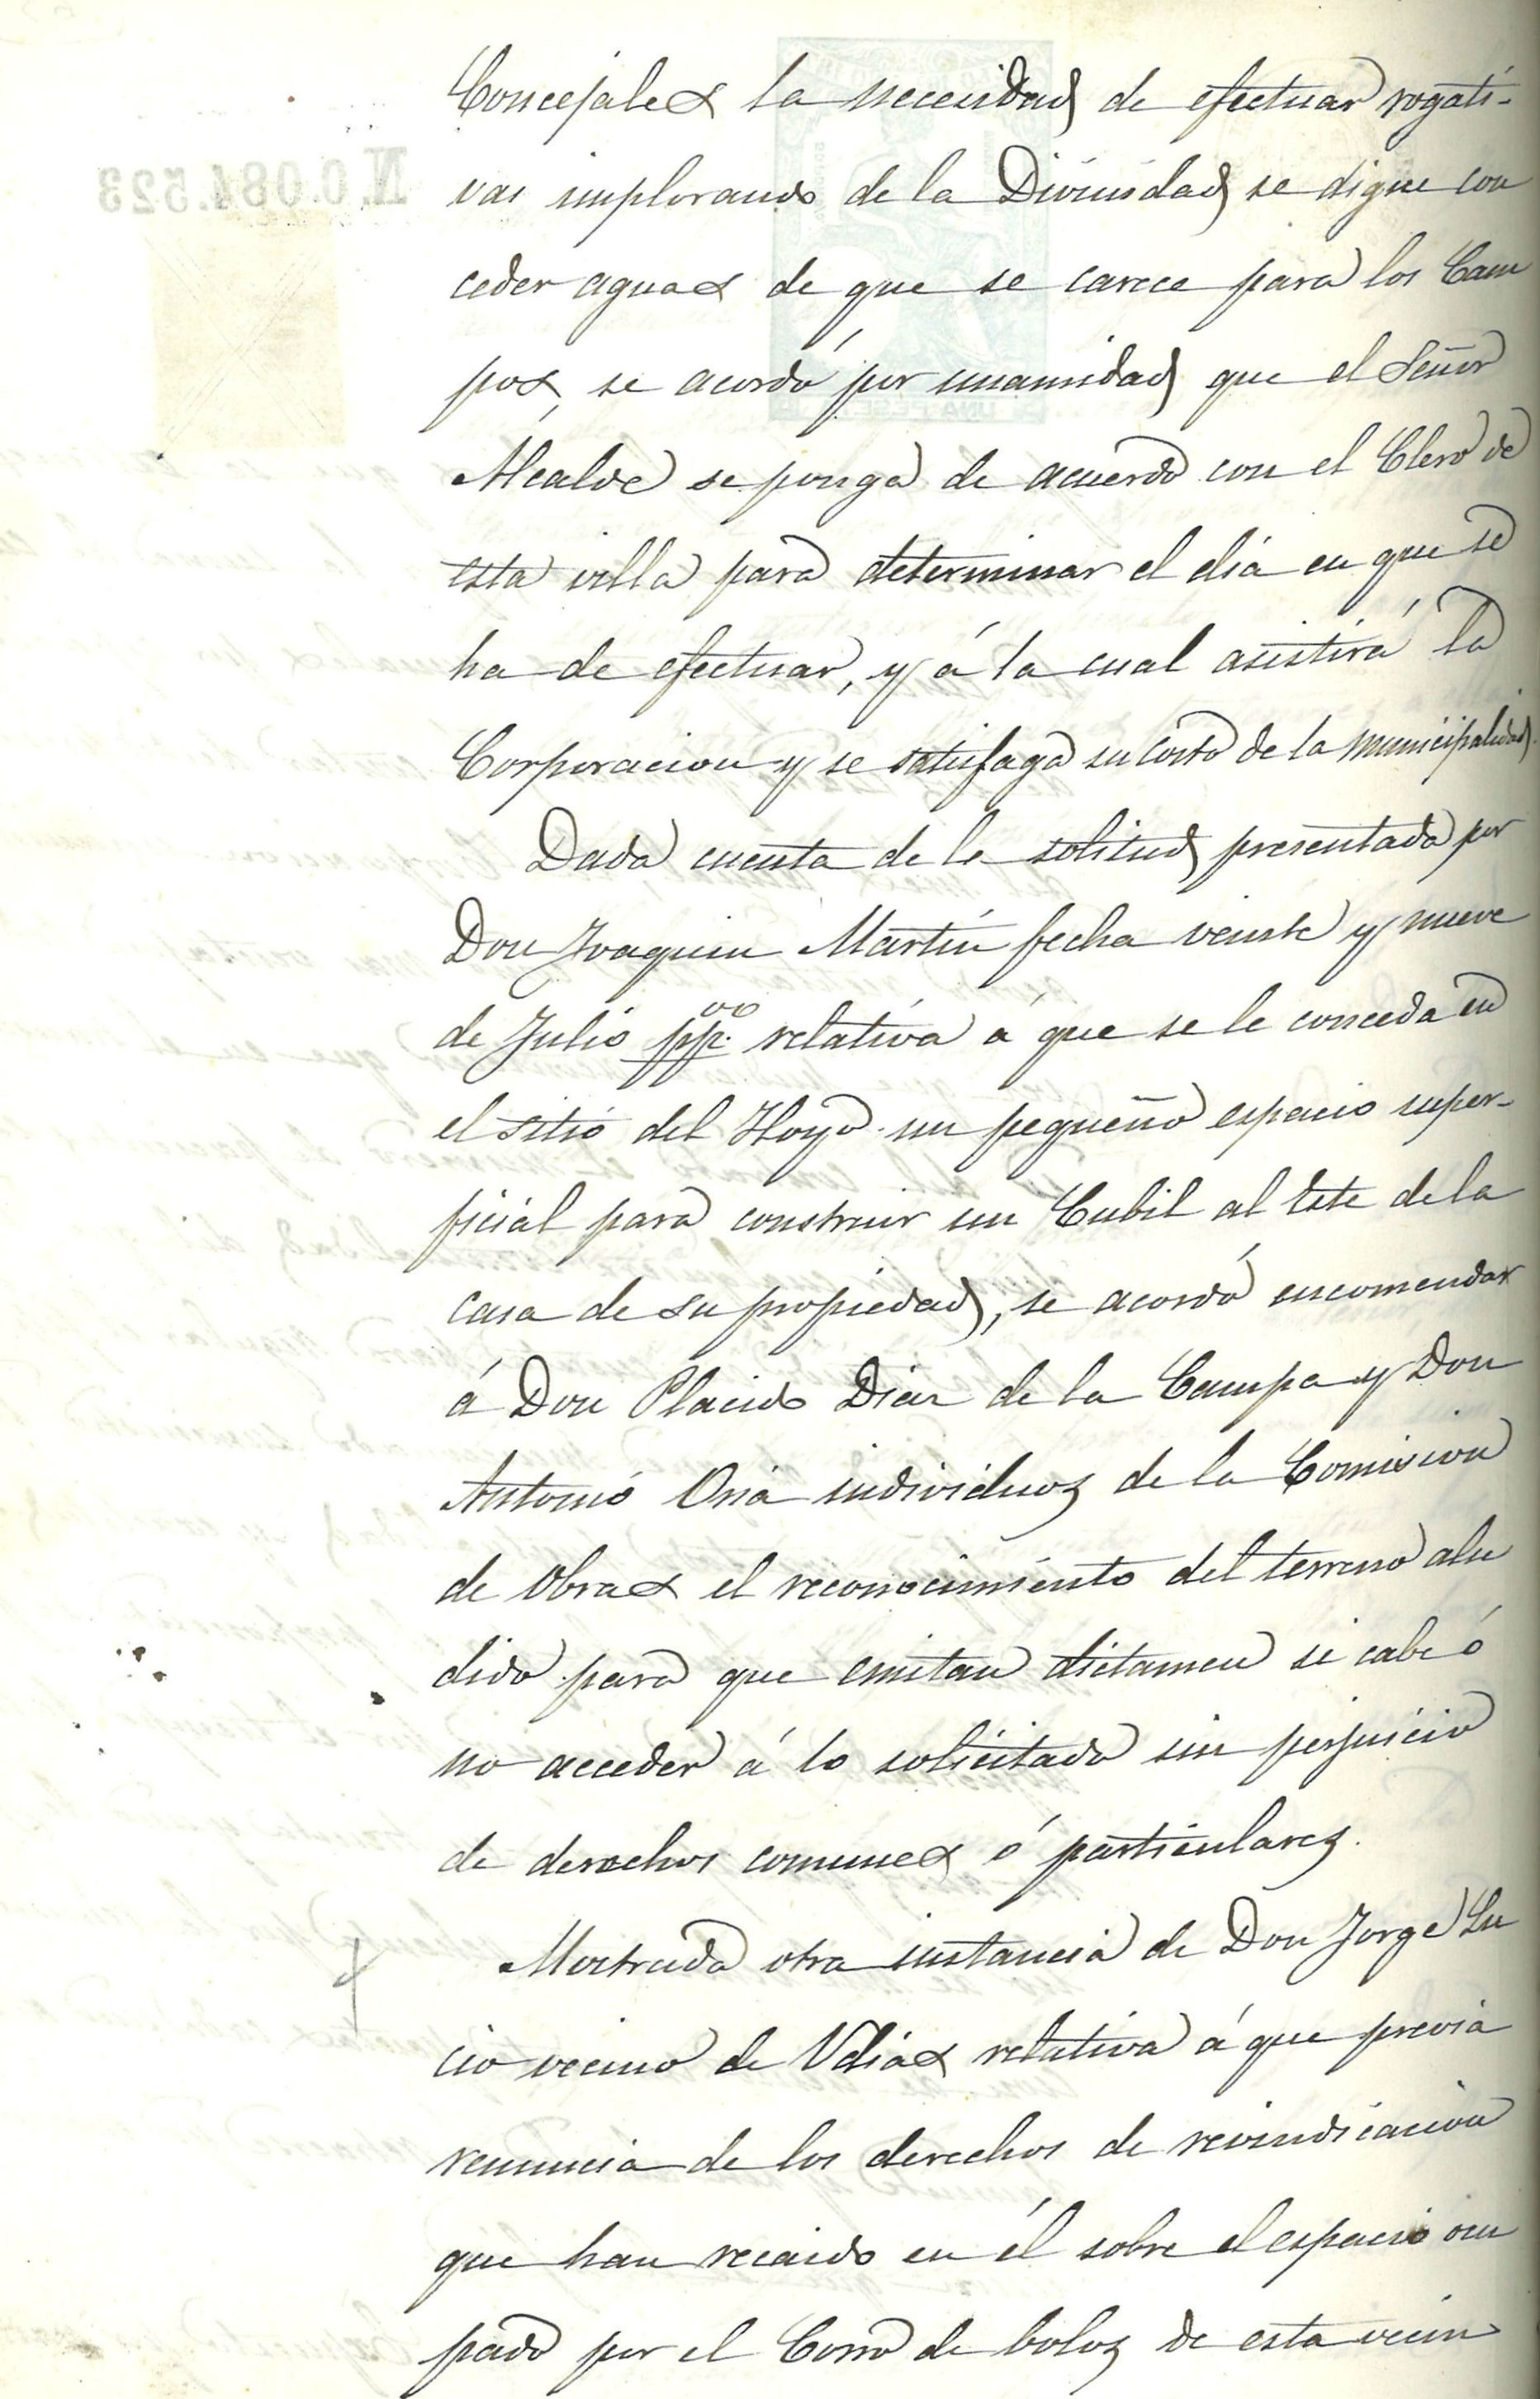 Concejales la necesidad de efectuar rogati-
vas implorando de la Divinidad se digne con
ceder aguas de que se carece para los Cam
pos, se acordó por unamidad que el Señor
Alcalde se ponga de acuerdo con el Clero de
esta villa para determinar el dia en que se
ha de efectuar, y á la cual asistirá la
Corporacion y se satisfaga su costo de la municipalidad.
Dada cuenta de la solitud presentada por
Don Joaquin Martin fecha veinte y nueve
de Julio pp.º relativa á que se le conceda en
el sitio del Hoyo un pequeño espacio super-
ficial para construir un Cubil al Este de la
casa de su propiedad, se acordó encomendar
á Don Placido Diaz de la Campa y Don
Antonio Oria individuos de la Comision
de Obras el reconocimiento del terreno alu
dido para que emitan dictamen si cabe ó
no acceder á lo solicitado sin perjuicio
de derechos comunes ó particulares.
Mostrada otra instancia de Don Jorge Lu
cio vecino de Udias relativa á que previa
renuncia de los derechos de reivindicacion
que han recaido en él sobre el espacio ocu
pado por el Corro de bolos de esta vecin
N.0.084.523
UNA PESETA